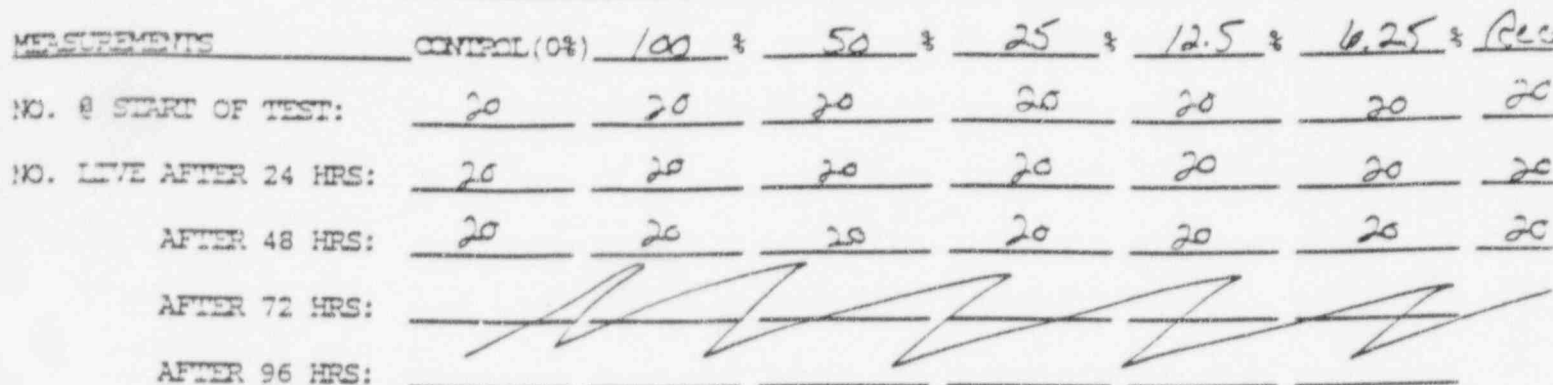 MEASUREMENTS CONTROL(0%) 100 % 50 % 25 % 12.5 % 6.25 % Rec
NO. @ START OF TEST: 20 20 20 20 20 20 20
NO. LIVE AFTER 24 HRS: 20 20 20 20 20 20 20
AFTER 48 HRS: 20 20 20 20 20 20 20
AFTER 72 HRS:
AFTER 96 HRS: